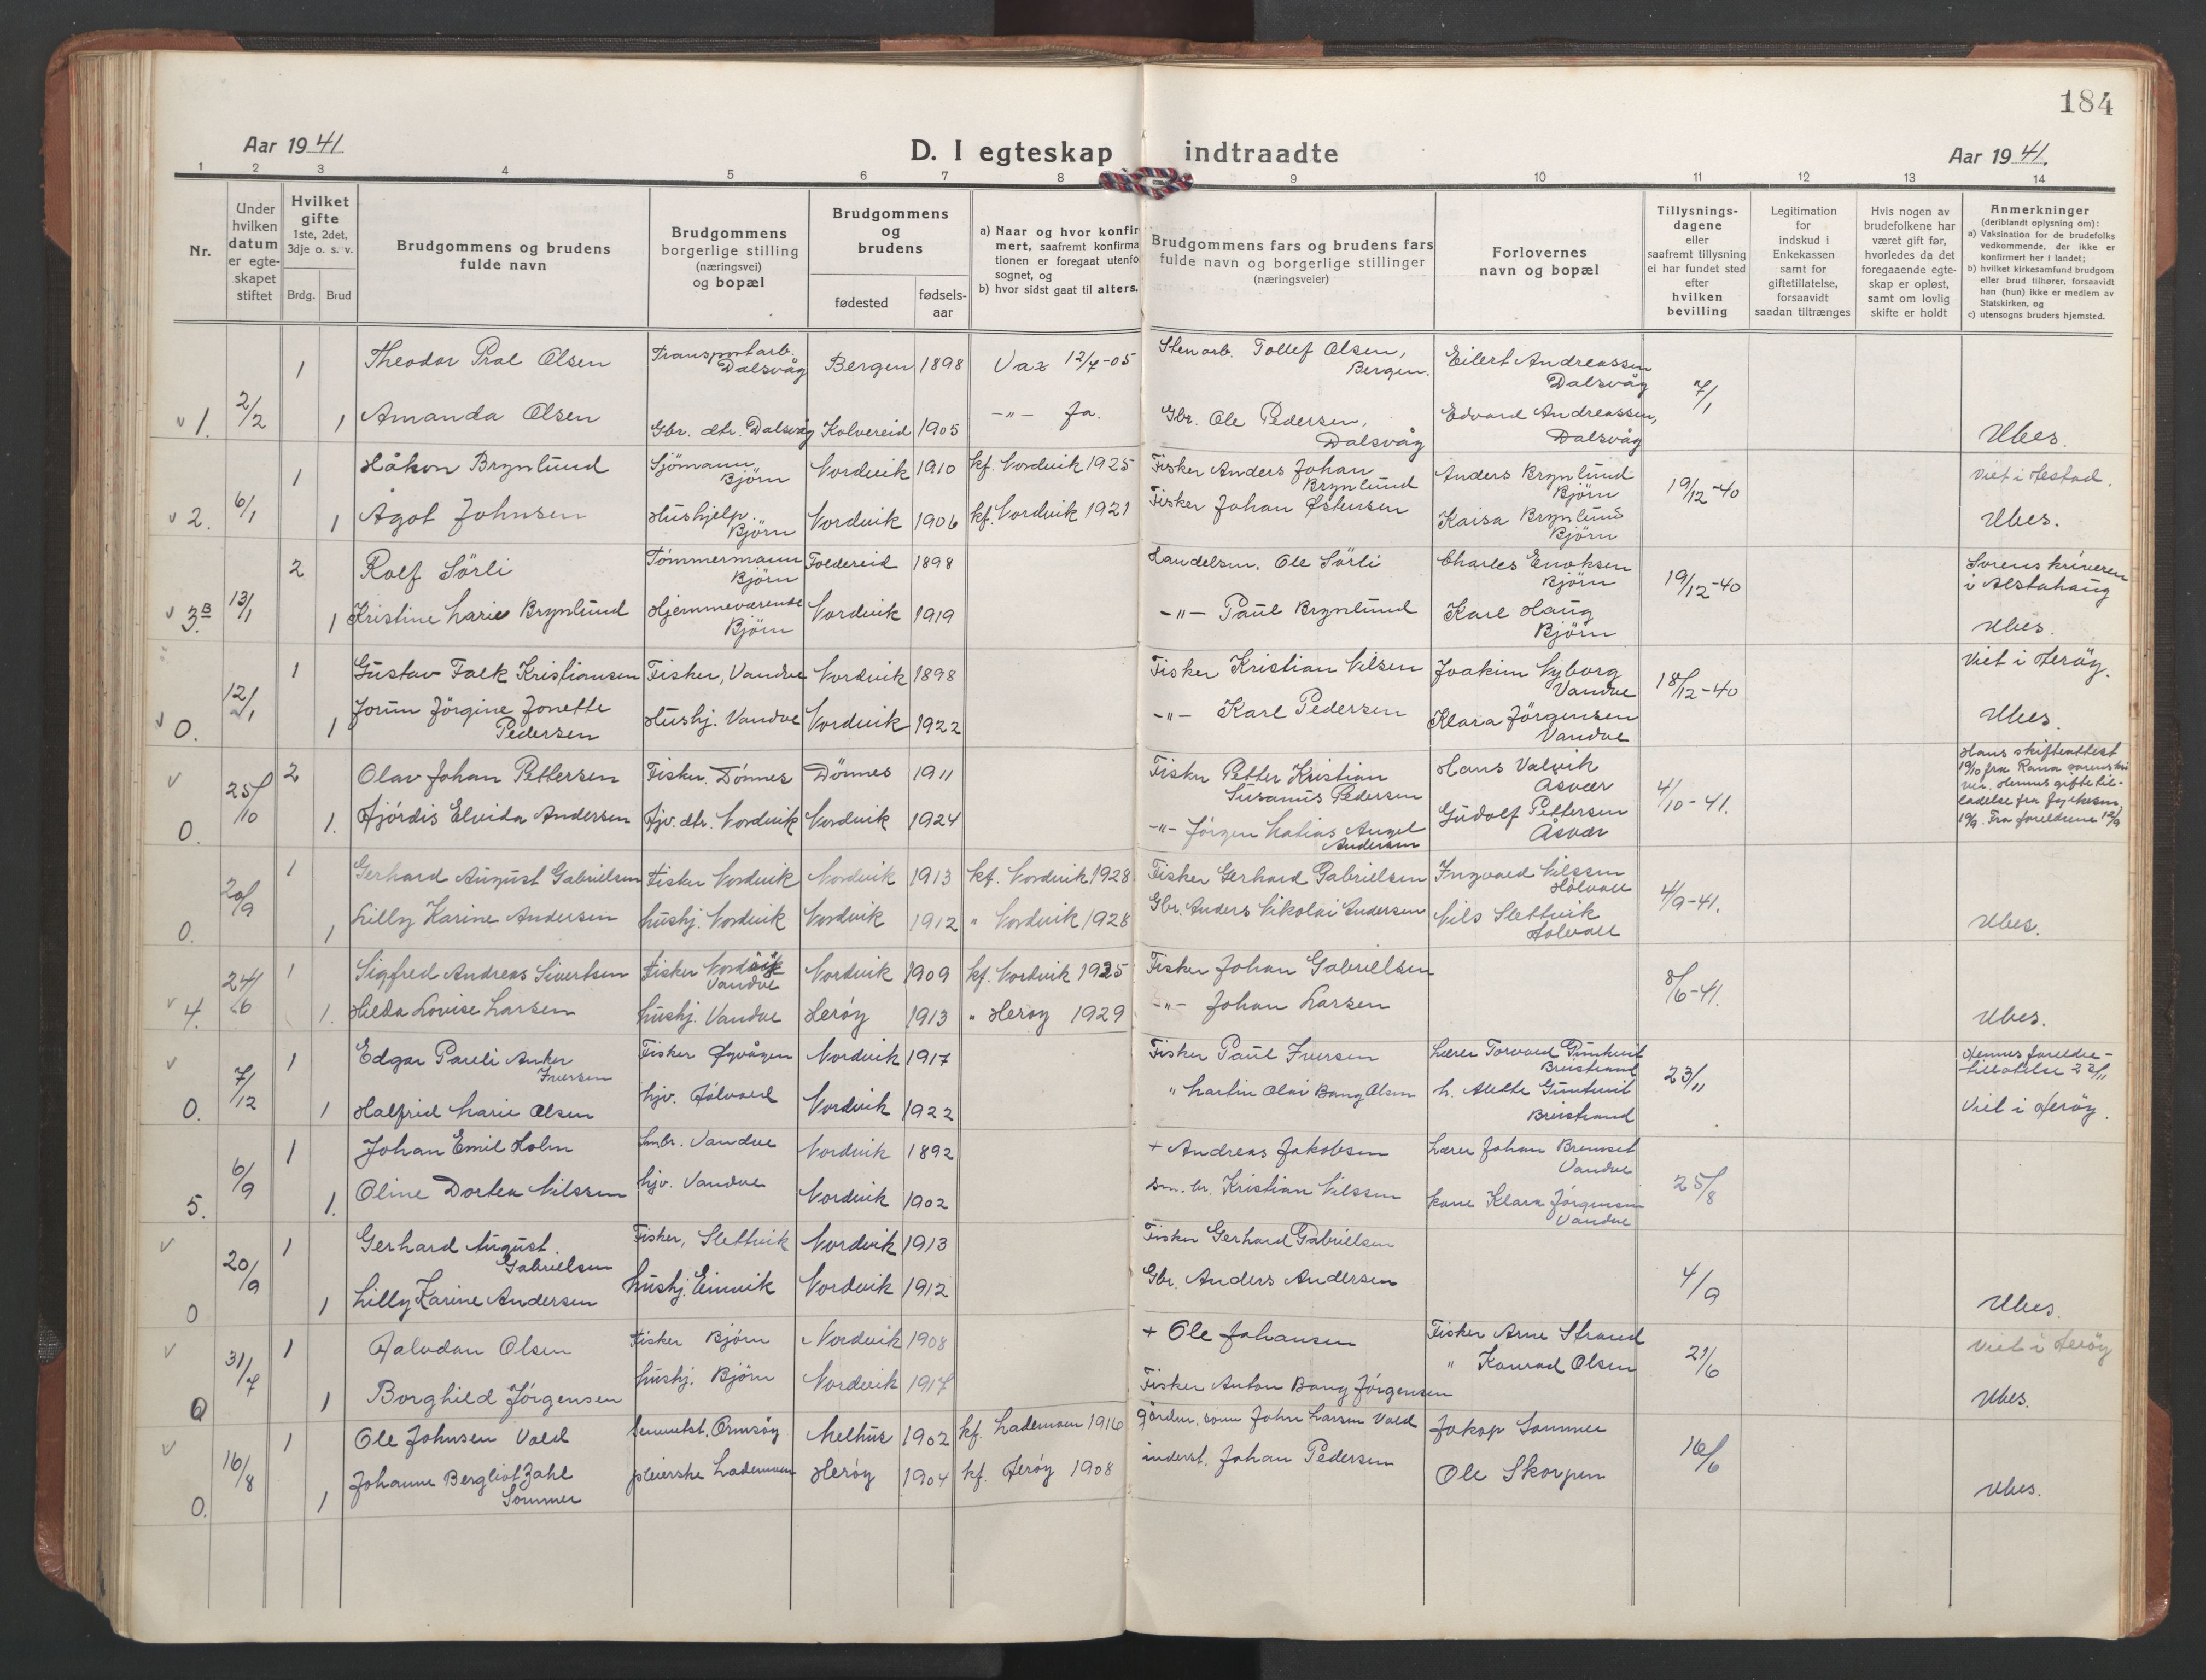 184
Aar 1941
D. I egteskap indtraadte
Aar 1941.
1 2 3 4 5 6 7 8 9 10 11 12 13 14
Nr.
Under hvilken datum er egteskapet stiftet
Hvilket gifte 1ste, 2det, 3dje o. s. v.
Brdg. Brud
Brudgommens og brudens fulde navn
Brudgommens borgerlige stilling (næringsvei) og bopæl
Brudgommens og brudens
fødested
fødsels-aar
a) Naar og hvor konfir
mert, saafremt konfirma
tionen er foregaat utenfo
sognet, og
b) hvor sidst gaat til alters.
Brudgommens fars og brudens fars
fulde navn og borgerlige stillinger
(næringsveier)
Forlovernes
navn og bopæl
Tillysnings-dagene eller saafremt tillysning ei har fundet sted efter hvilken bevilling
Legitimation for indskud i Enkekassen samt for giftetillatelse, forsaavidt saadan tiltrænges
Hvis nogen av brudefolkene har været gift før, hvorledes da det foregaaende egteskap er opløst, samt om lovlig skifte er holdt
Anmerkninger
(deriblandt oplysning om):
a) Vaksination for de brudefolks vedkommende, der ikke er konfirmert her i landet;
b) hvilket kirkesamfund brudgom eller brud tilhører, forsaavidt han (hun) ikke er medlem av Statskirken, og
c) utensogns bruders hjemsted.
1 Theodor Olsen Transportarb. Dalsvåg Bergen 1898 Vax 12/7-05 Stenarb. Tollef Olsen, Bergen. Eilert Andreassen Dalsvåg 7/1
v 1. 2/2 1 Amanda Olsen Gbr. dtr. Dalsvåg Kolvereid 1905 -"- Ja. Gbr. Ole Pedersen, Dalsvåg Edvard Andreassen, Dalsvåg Ubes.
1 Håkon Brynlund Sjömann Björn Nordvik 1910 kf. Nordvik 1925 Fisker Anders Johan Brynlund Anders Brynlund Björn 19/12-40 Viet i Hestad.
v 2. 6/1 1 Ågot Johnsen Hushjelp. Björn Nordvik 1906 kf. Nordvik 1921 Fisker Johan Østensen Kaisa Brynlund Björn Ubes.
2 Rolf Sörli Tömmermann Björn Foldereid 1898 Handelsm. Ole Sörli Charles Enoksen Björn 19/12-40 Sorenskriveren i Alstahaug
v 3.B 13/1 1 Kristine Marie Brynlund Hjemmeværende Björn Nordvik 1919 -"- Paul Brynlund Karl Haug Björn Ubes.
1 Gustav Falk Kristiansen Fisker, Vandve Nordvik 1898 Fisker Kristian Nilsen Joakim Nyborg Vandve 18/12-40 Viet i Herøy.
v 0. 12/1 1 Jorun Jörgine Jonette Pedersen Hushj. Vandve Nordvik 1922 -"- Karl Pedersen Klara Jörgensen Vandve Ubes.
v 2 Olav Johan Pettersen Fisker. Dønnes Dønnes 1911 Fisker Petter Kristian Susanus Pedersen Hans Valvik Åsvær 4/10-41. Hans skifteattest 19/10 fra Rana
0. 25/10 1. Hjördis Elvida Andersen Hjv. dtr. Nordvik Nordvik 1924 -"- Jörgen Matias Angel Andersen Gudolf Pettersen Åsvær Hennes giftetilladelse fra fylkesm. 19/9. Fra foreldrene 12/9
1 Gerhard August Gabrielsen Fisker Nordvik Nordvik 1913 kf. Nordvik 1928 Fisker Gerhard Gabrielsen Ingvald Nilssen 4/9-41.
0. 20/9 1 Lilly Karine Andersen hushj. Nordvik Nordvik 1912 " Nordvik 1928 Gbr. Anders Nikolai Andersen Nils Slettvik Ubes.
1 Sigfred Andreas Sivertsen Fisker Nordvik Vandve Nordvik 1909 kf. Nordvik 1925 Fisker Johan Gabrielsen 8/6-41.
v 4. 24/6 1. Hilda Lovise Larsen hushj. Vandve Herøy 1913 " Herøy 1929 -"- Johan Larsen Ubes.
v 1 Edgar Pareli Anker Iversen Fisker Øyvågen Nordvik 1917 Fisker Paul Iversen Lærer Torvald Breistrand 23/11 Hennes foreldre-tillatelse 22/11
0. 7/12 1 Halfrid Marie Olsen hjv. Nordvik 1922 " Martin Olai Bang Olsen Breistrand Viet i Herøy.
1 Johan Emil Holm Smbr. Vandve Nordvik 1892 + Andreas Jakobsen Lærer Johan Vandve 25/8
5. 6/9 1. Oline Dortea Nilssen hjv. Vandve Nordvik 1902 Sm. br. Kristian Nilssen kone Klara Jörgensen Vandve
v 1 Gerhard August Gabrielsen Fisker, Slettvik Nordvik 1913 Fisker Gerhard Gabrielsen 4/9
0 20/9 1 Lilly Karine Andersen hushj. Einvik Nordvik 1912 Gbr. Anders Andersen Ubes.
v 1 Halvdan Olsen Fisker Björn Nordvik 1908 + Ole Johansen Fisker Arne Strand 21/6 Viet i Herøy
0 31/7 1 Borghild Jörgensen hushj. Björn Nordvik 1917 Fisker Anton Bang Jörgensen " Konrad Olsen Ubes.
v 1 Ole Johnsen Vold Ormsøy Melhus 1902 kf. Lademoen 1916 gårdm. sønn John Larsen Vold Jakop Sommer 16/6
0. 16/8 1 Johanne Bergliot Zahl Sommer pleierske Lademoen Herøy 1904 kf. Herøy 1908 inderst. Johan Pedersen Ole Skorpen Ubes.